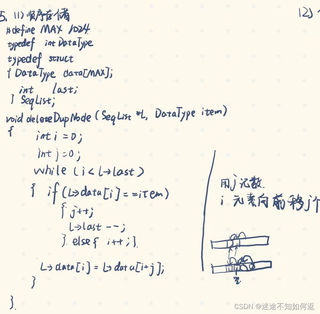 5. (1) 顺序存储
(2)
#define MAX 1024
typedef int DataType
typedef struct
{ DataType data[MAX];
int last;
} SeqList;
void deleteDupNode (SeqList *L, DataType item)
{
int i = 0;
int j = 0;
while (i < L->last)
{ if (L->data[i] == item)
{ j++;
L->last --;
} else { i++; }
L->data[i] = L->data[i+j];
}
}
用j记数
i 元素向前移j个
CSDN @迷途不知如何返